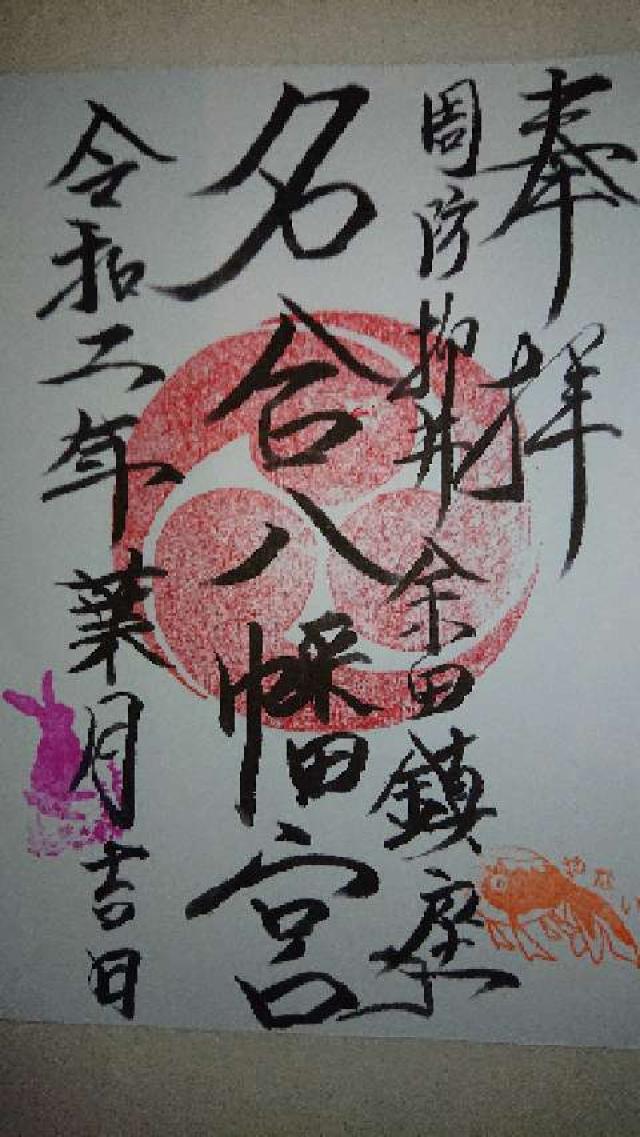 奉拝
周防柳井余田鎮座
名合八幡宮
令和二年葉月吉日
やない